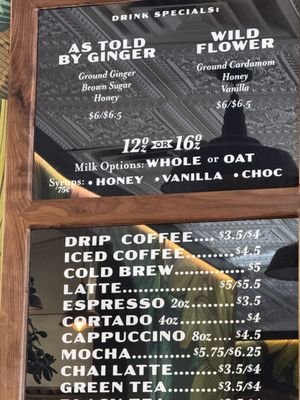 DRINK SPECIALS:
AS TOLD
BY GINGER
Ground Ginger
Brown Sugar
Honey
$6/$6.5
WILD
FLOWER
Ground Cardamom
Honey
Vanilla
$6/$6.5
12oz OR 16oz
Milk Options: WHOLE or OAT
Syrups: • HONEY • VANILLA • CHOC
75¢
DRIP COFFEE.... $3.5/$4
ICED COFFEE........ $4.5
COLD BREW............ $5
LATTE................ $5/$5.5
ESPRESSO 2oz........ $3.5
CORTADO 4oz............ $4
CAPPUCCINO 8oz.... $4.5
MOCHA........... $5.75/$6.25
CHAI LATTE....... $3.5/$4
GREEN TEA........ $3.5/$4